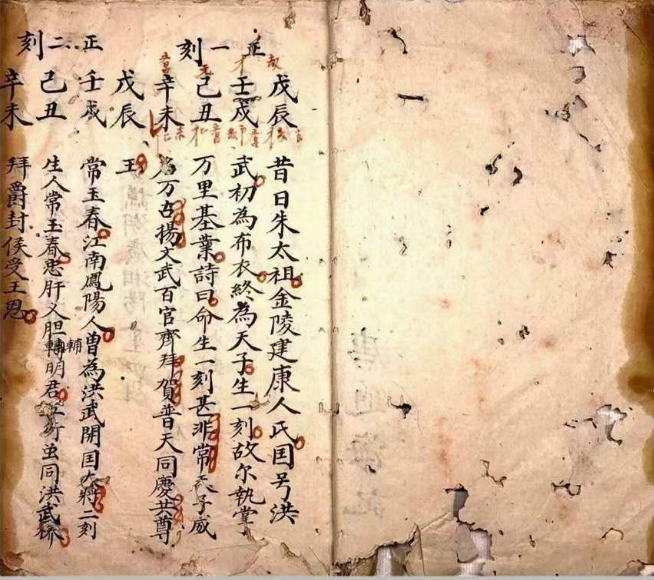 正一刻
戊辰 昔日朱太祖金陵建康人氏囯号洪
壬戍 武初為布衣終為天子生一刻故尔執掌
己丑 万里基業詩曰命生一刻甚非常天子威
辛未 万古揚文武百官齊拜賀普天同慶共尊
戊辰 王
正二刻
壬戍 常玉春江南鳳陽人曽為洪武開囯大將二刻
己丑 生人常玉春忠肝义胆輔明君行虽同洪武
辛未 拜爵封侯受王恩